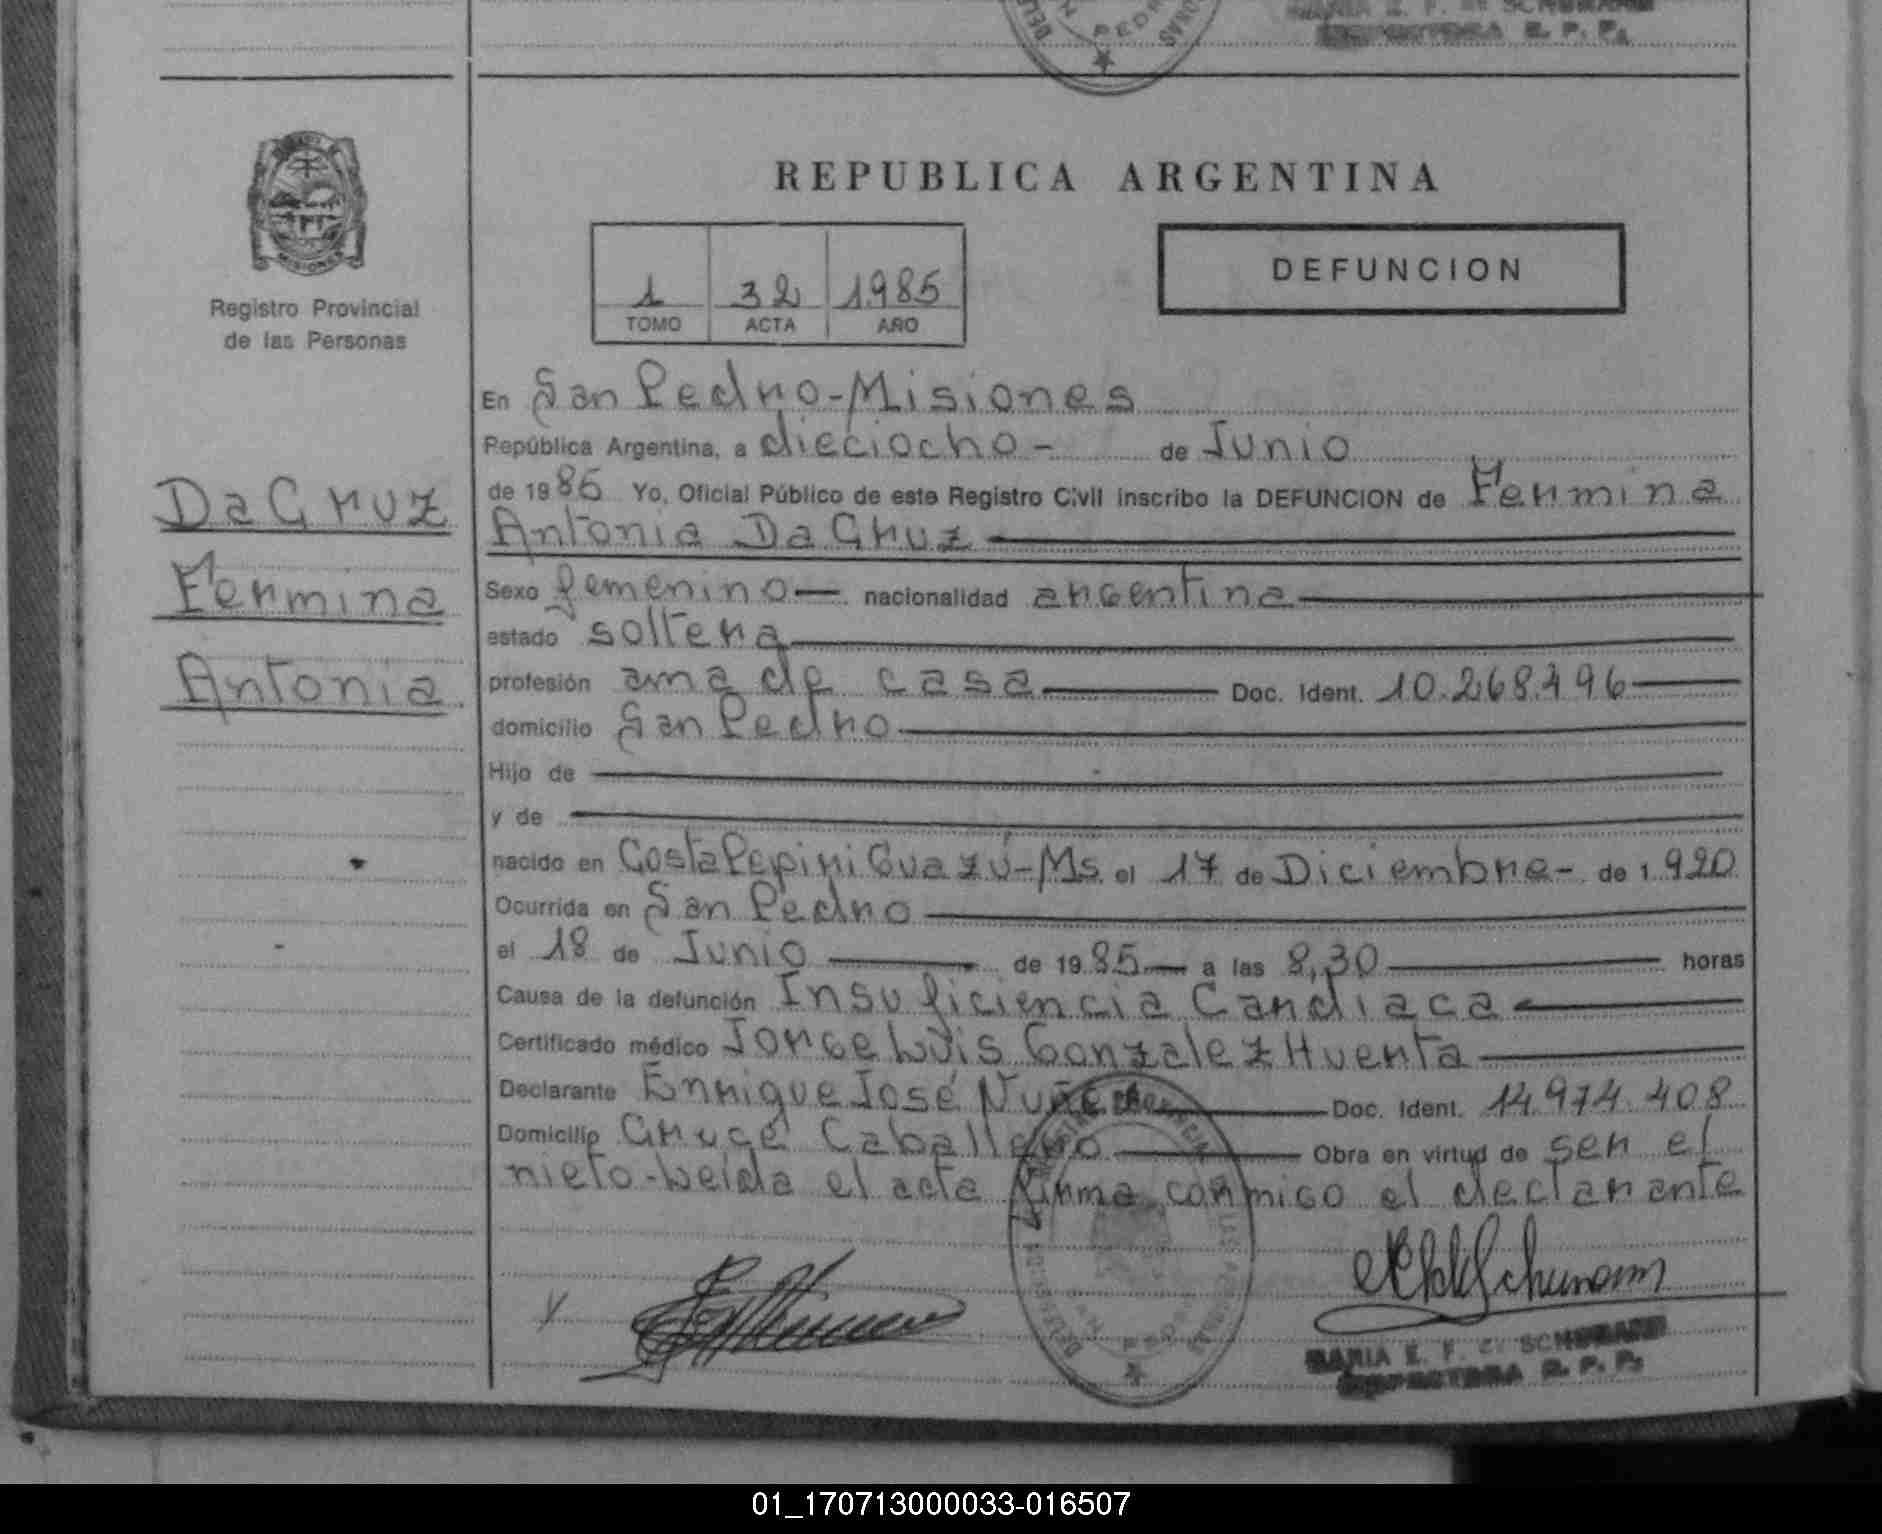 MARIA E. F. de SCHUMANN
INSPECTORA R. P. P.
SAN PEDRO
MISIONES
Registro Provincial
de las Personas
REPUBLICA ARGENTINA
1 32 1985
TOMO ACTA AÑO
DEFUNCION
Da Cruz
Fermina
Antonia
En San Pedro-Misiones
República Argentina, a dieciocho - de Junio
de 1985 Yo, Oficial Público de este Registro Civil inscribo la DEFUNCION de Fermina
Antonia Da Cruz
Sexo femenino nacionalidad argentina
estado soltera
profesión ama de casa Doc. Ident. 10.268.496
domicilio San Pedro
Hijo de
y de
nacido en Costa Pepiri Guazú-Ms. el 17 de Diciembre- de 1.920
Ocurrida en San Pedro
el 18 de Junio de 1985 a las 8,30 horas
Causa de la defunción Insuficiencia Cardiaca
Certificado médico Jorge Luis Gonzalez Huerta
Declarante Enrique José Nuñez Doc. Ident. 14.974.408
Domicilio Cruce Caballero Obra en virtud de ser el
nieto-Leida el acta firma conmigo el declarante
MARIA E. F. de SCHUMANN
INSPECTORA R. P. P.
01_170713000033-016507